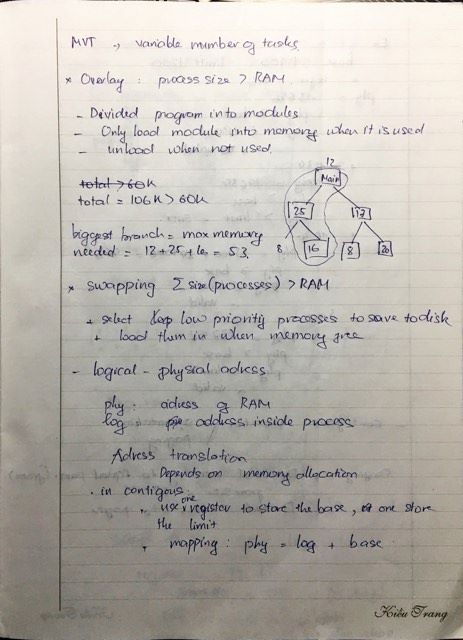 MVT → variable number of tasks
* Overlay : process size > RAM
- Divided program into modules
- Only load module into memory when it is used
- unload when not used.
12
Main
total > 60K
total = 106K > 60K
25
17
biggest branch = max memory
needed = 12 + 25 + 16 = 53.
8
16
8
20
* swapping Σ size(processes) > RAM
+ select low priority processes to save to disk
+ load them in when memory free
- logical - physial adress
phy : adress of RAM
log : address inside process
Adress translation
Depends on memory allocation
. in contigous :
. use one register to store the base, one store
the limit
. mapping : phy = log + base
Kiều Trang